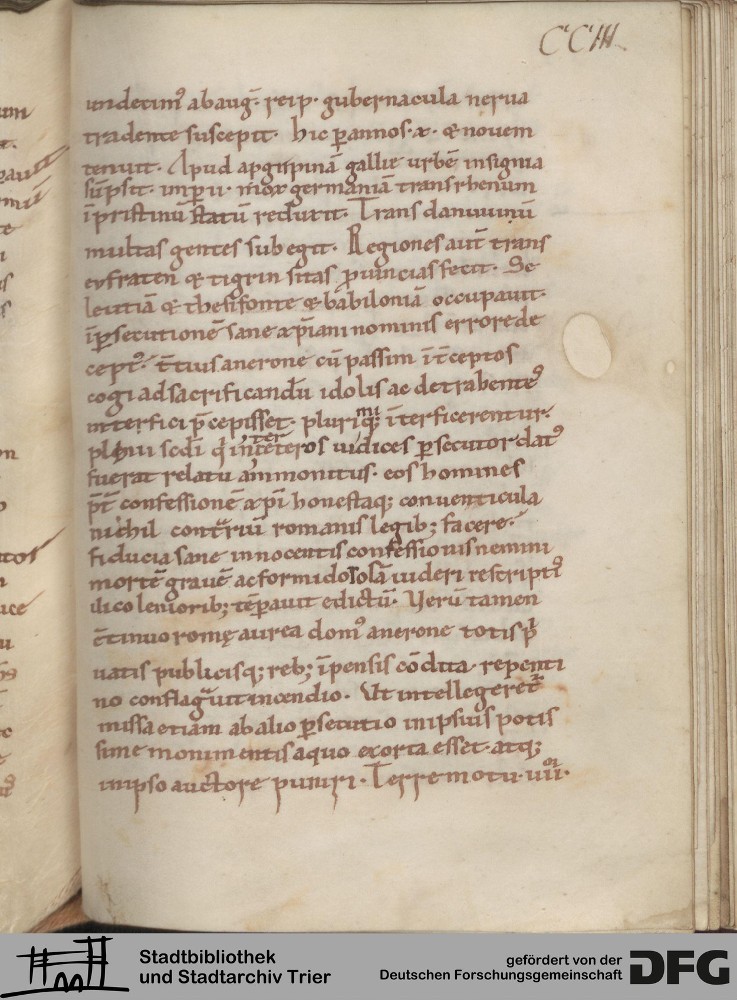 CCIII
undecim᷒ ab aug̅. reip. gubernacula nerua
tradente suscepit. hic p̱ annos .x. & nouem
tenuit. Apud agrippinā gallie urbē insignia
sūpsit. imp̱ii. mox germaniā trans rhenum
īpristinū statū reduxit. Trans danuuiuū
multas gentes subegit. Regiones aut̄ trans
eufraten & tigrin sitas ꝓuincias fecit. Se
leutiā & thesifonte & babiloniā occupauit.
īp̱secutione sane xp̄iani nominis errore de
cept᷒. t̄cius anerone cū passim īt̄ceptos
cogi ad sacrificandū idolis ac detrabente᷒
interfici p̄cepisset. plurimiq; īterficerentur.
plinii sedi q̄ inter ceteros iudices p̱secutor dat᷒
fuerat relatu ammonitus. eos homines
p̄t̄ confessionē xp̄i honestaq; conuenticula
nichil contrariū romanis legib; facere.
fiducia sane innocentis confessionis nemini
mortē grauē ac formidolosā uideri rescriptis
ilico leniorib; tēpauit edictū. Uerū tamen
c̄tinuo romę aurea dom᷒ anerone totis p̱
uatis publicisq; reb; īpensis cōdita. repenti
no conflagrauit incendio. Ut intellegeret̄
missa etiam ab alio p̱secutio in ipsius potis
sime monimentis a quo exorta esset. atq;
in ipso auctore puniri. Terremotu .uii.
Stadtbibliothek
und Stadtarchiv Trier
gefördert von der
Deutschen Forschungsgemeinschaft
DFG